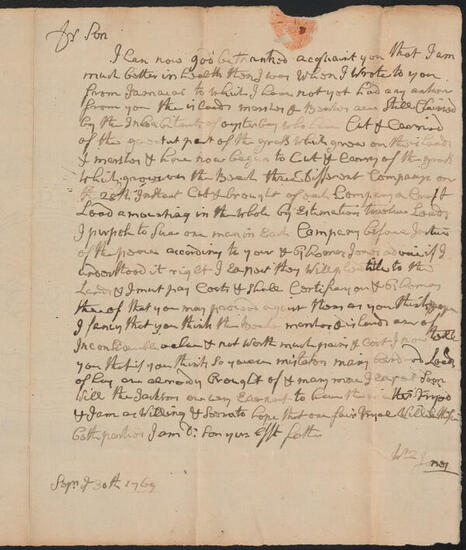 Dr Son
I Can now god be thanked acquaint you that I am
much better in health then I was when I wrote to you
from Jamaica to which I have not yet had any answer
from you the islands marshes & Beaches are still Claimed
by the Inhabitants of oysterbay who have Cut & Carried
of the greatest part of the grass which grew on the islands
& marshes & have now began to Cut & Carry of the grass
which grows on the Beach three different Companys on
the 28th Instant Cut & brought of each Company a Craft
Load amounting in the whole by Estimation twelve Loads
I purpose to Sue one man in Each Company before Justice
of the peace according to your & Thomas Jones advice if I
understood it right I expect they will plead title to the
Lands & I must pay Costs & shall Certify you &
there of that you may proceed against them as you think
I fancy that you think the Beach marshes & islands are of
Inconsiderable value & not worth much pains & Cost I now tell
you that if you think so you are mistaken many Loads
of hay are already brought of & many more I expect soon
will the Jacksons are very earnest to have the tryed
& I am as willing & So are to hope that one fair Tryal will
both parties I am Dr Son your Afft father
Wm Jones
Sepr ye 30th 1769